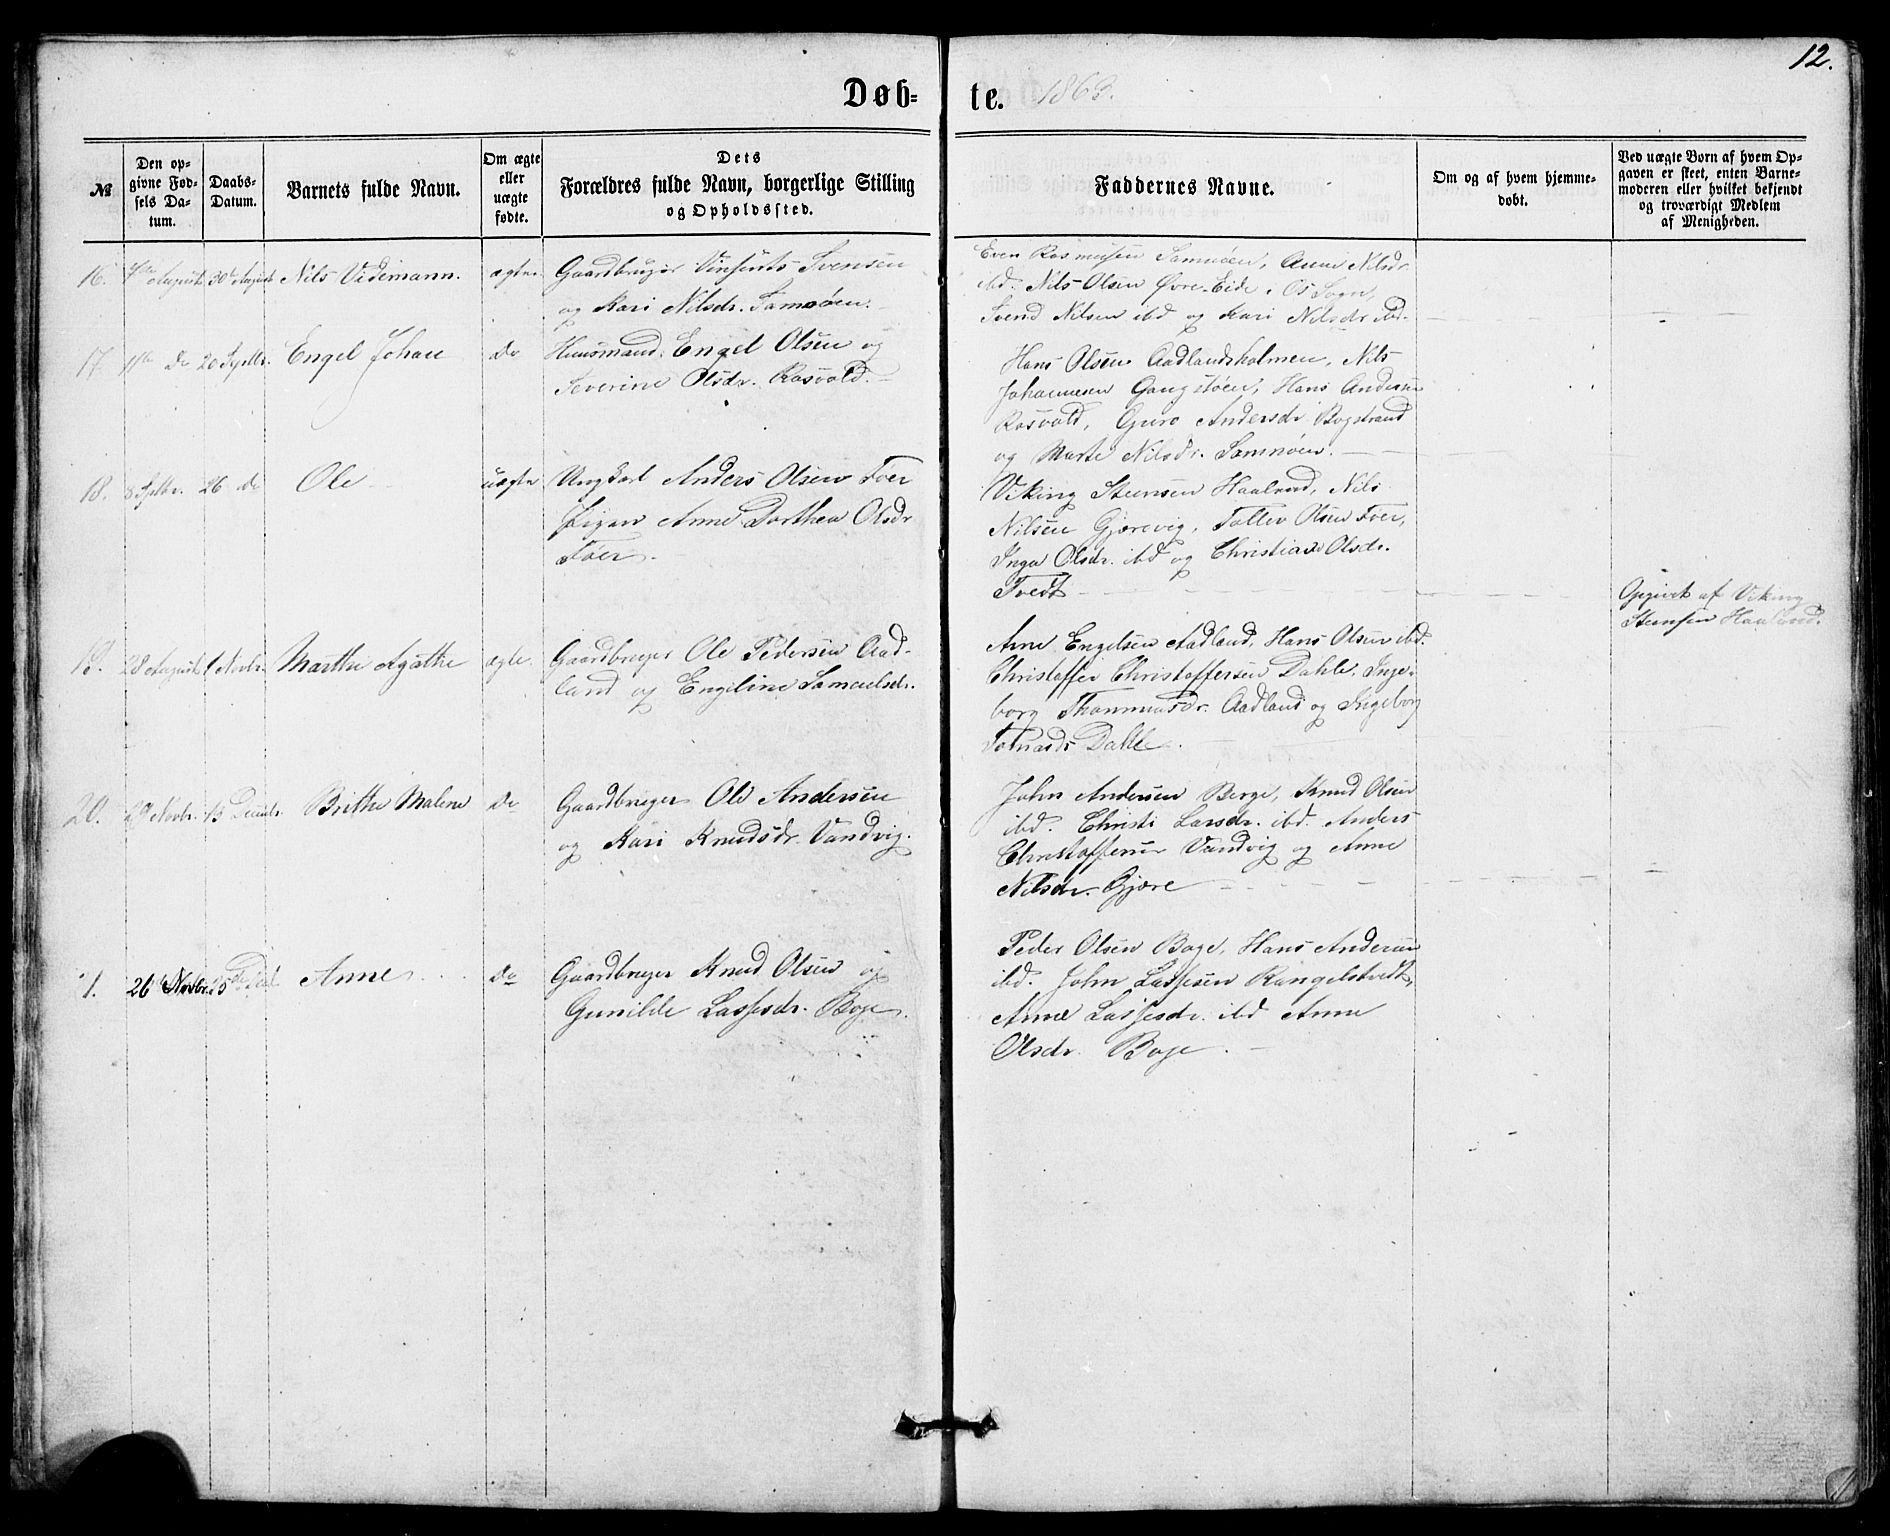 12.
Døb=
te. 1863.
№
Den op-
givne Fød-
sels Da-
tum.
Daabs-
Datum.
Barnets fulde Navn.
Om ægte
eller
uægte
fødte.
Dets
Forældres fulde Navn, borgerlige Stilling
og Opholdssted.
Faddernes Navne.
Om og af hvem hjemme-
døbt.
Ved uægte Børn af hvem Op-
gaven er skeet, enten Barne-
moderen eller hvilket bekjendt
og troværdigt Medlem
af Menigheden.
16. 7de August 30te August Nils Vidimann. ægte. Gaardbruger Vinsents Svensen
og Kari Nilsdr. Samnøen.
Even Rasmusen Samnøen, Anne Nilsdr.
ibd. Nils Olsen Øvre-Eide, Os Sogn,
Svend Nilsen ibd og Kari Nilsdr ibd.
17. 11te Do 20 Septbr. Engel Johan Do Huusmand Engel Olsen og
Severine Olsdr. Rosvold.
Hans Olsen Aadlandsholmen, Nils
Johannesen Gangstøen, Hans Andersen
Rosvold, Guro Andersdr Bogstrand
og Marte Nilsdr. Samnøen.
18. 8 Septbr. 26 do Ole uægte Ungkarl Anders Olsen Toer
Pigen Anne Dorthea Olsdr
Toer.
Viking Steensen Haalund, Nils
Nilsen Gjerevig, Tollev Olsen Toer,
Inga Olsdr. ibd og Christiane Olsdr.
Tvedt
Opgivet af Viking
Steensen Haaland.
19. 28 August 1 Novbr. Marthe Agathe ægte. Gaardbruger Ole Pedersen Aad-
land og Engeline Samuelsdr.
Arne Engelsen Aadland, Hans Olsen ibd.
Christoffer Christoffersen Dahle, Inge-
borg Thommasdr. Aadland og Ingeborg
Dahle.
20. 29 Novbr. 13 Decmbr. Brithe Malene Do Gaardbruger Ole Andersen
og Kari Knudsdr. Vandvig.
John Andersen Berge, Knud Olsen
ibd. Christi Larsdr. ibd. Anders
Christoffersen Vandvig og Anne
Nilsdr. Gjøre
1. 26 Novbr. 25de Anne Do Gaardbruger Knud Olsen og
Gunilde Lassesdr. Boge.
Peder Olsen Boge, Hans Andersen
ibd. John Lassesen Rangelstvedt,
Anne Lassesdr. ibd Anne
Olsdr. Boge.